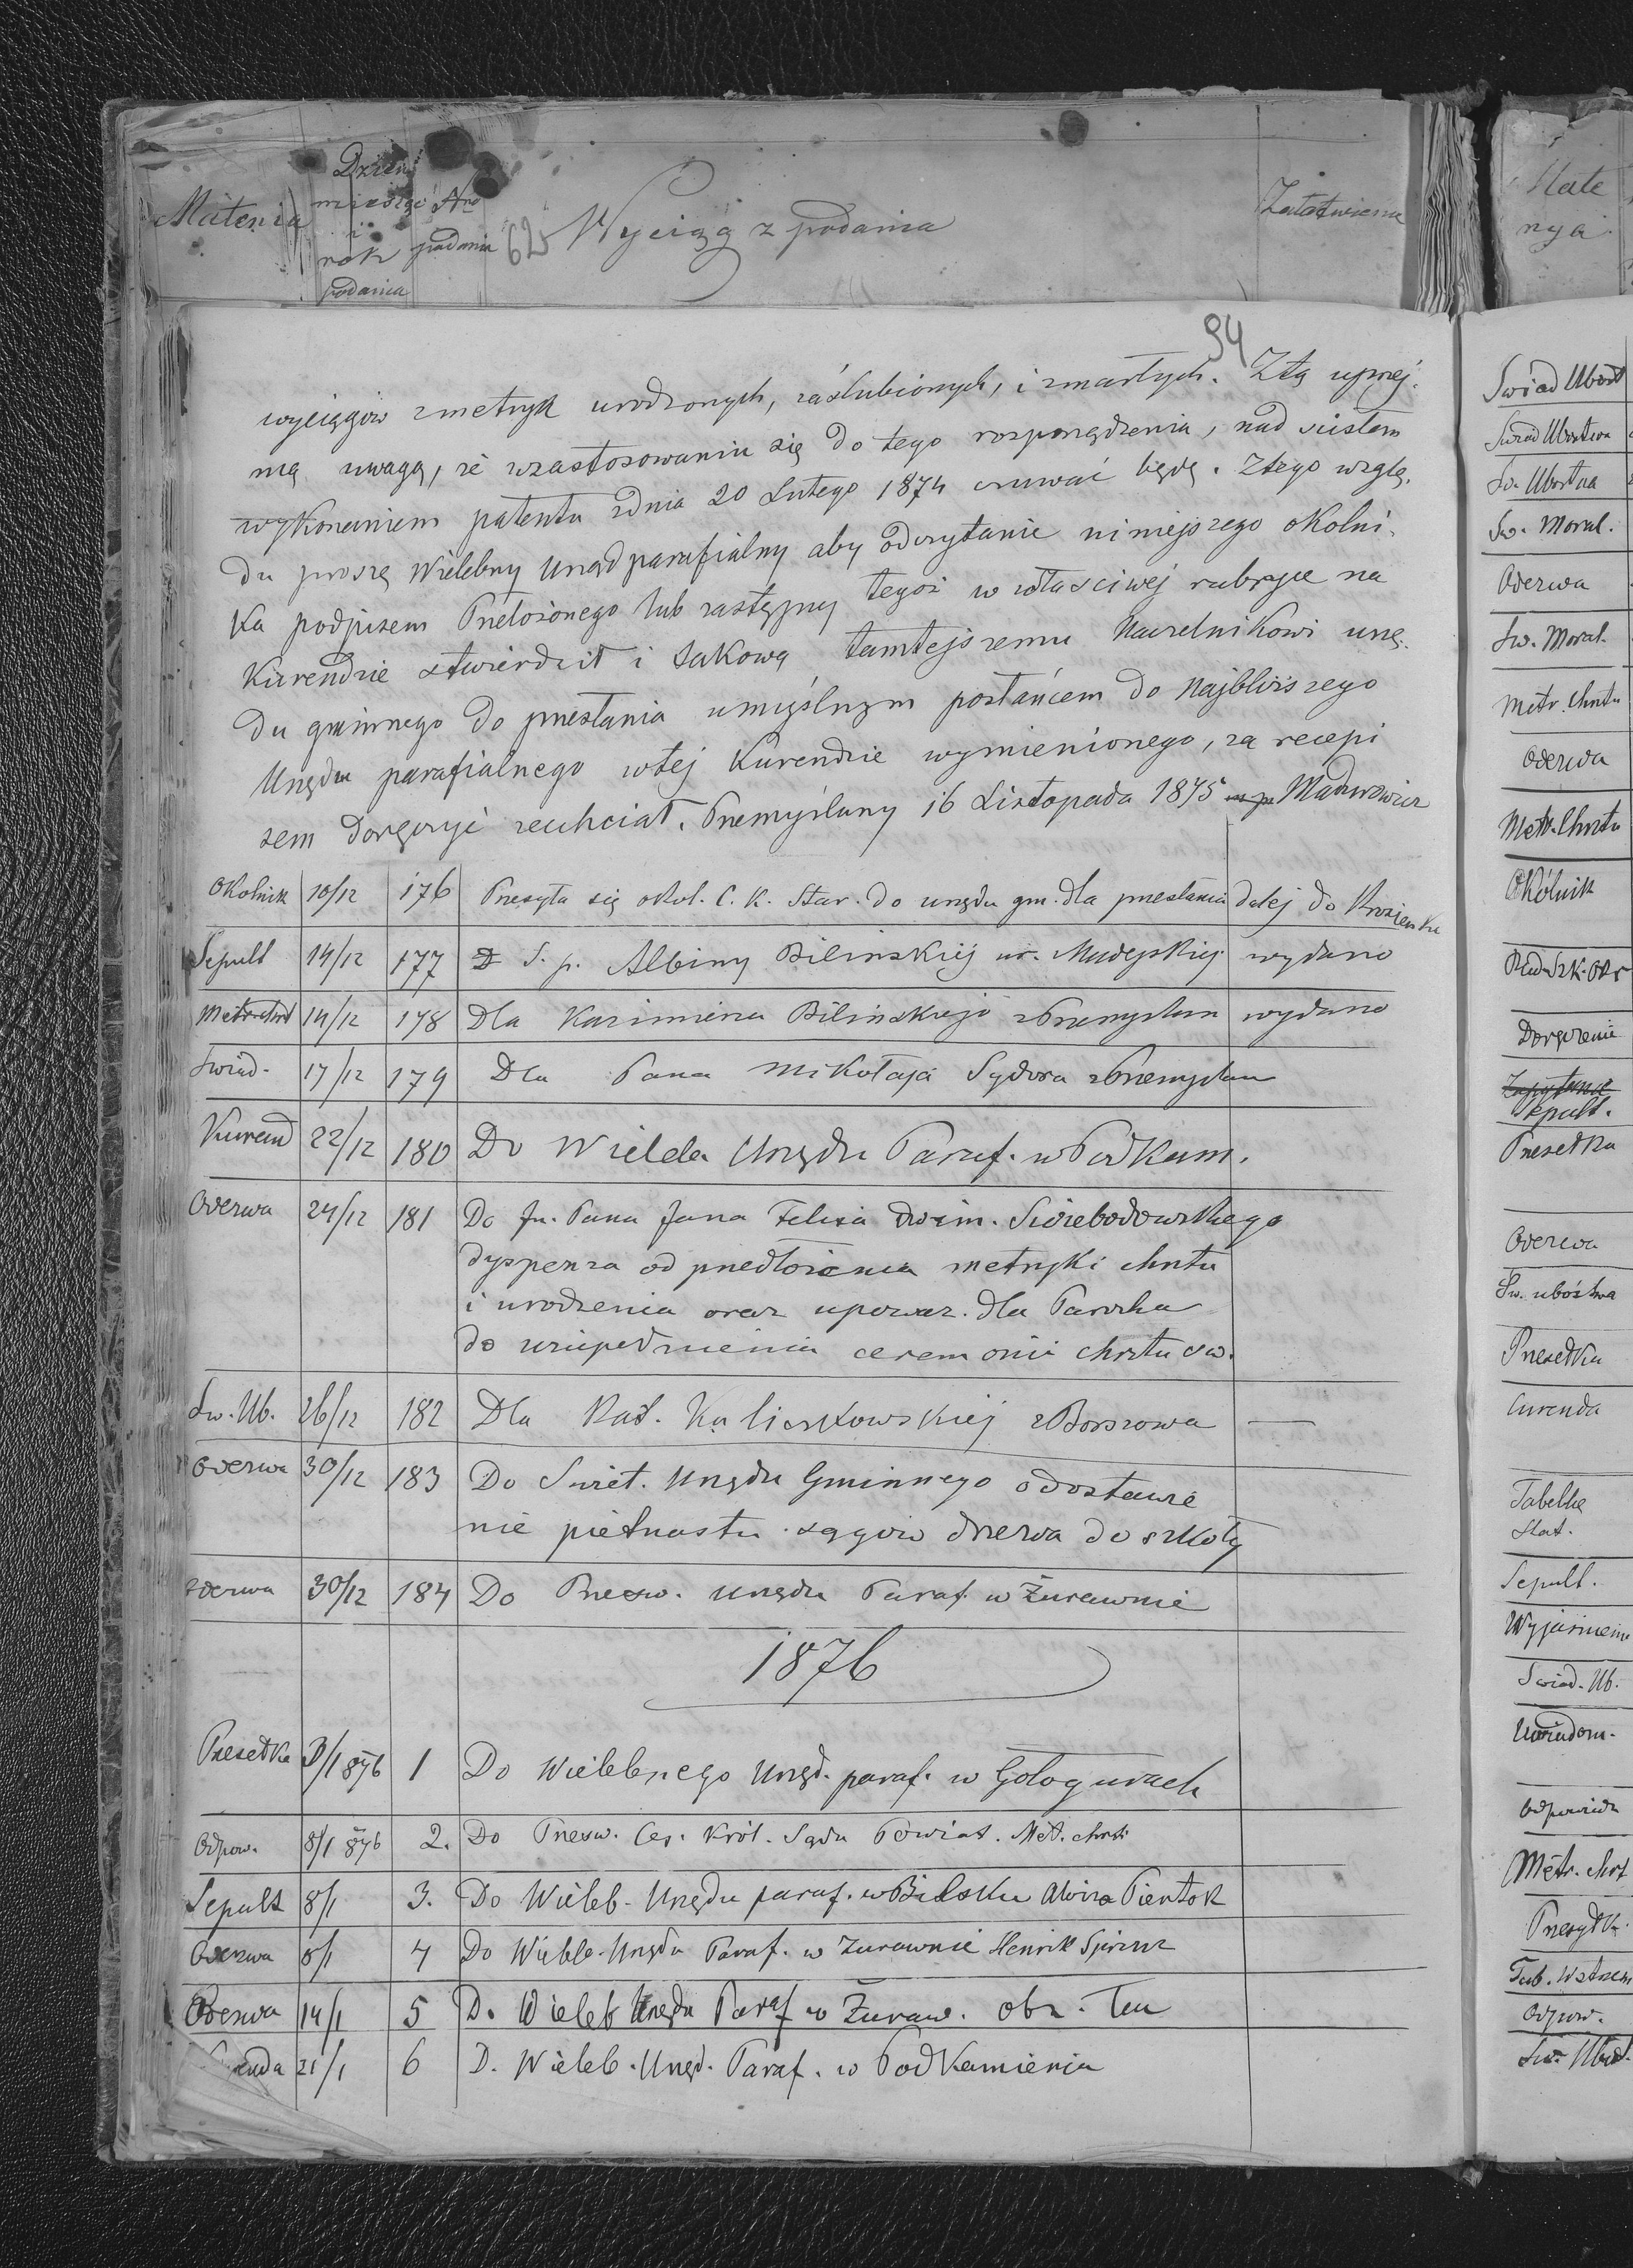 Materia
Dzień
miesiąc
i
rok
podania
Nro
podania
625
Wyciąg z podania
Załatwienie
Mate
rya
94
wyciągów zmetryk urodzonych, zaślubionych, i zmarłych. Ztą uprzej.
mą uwagą, że wzastosowaniu się do tego rozporządzenia, nad ścisłem
wykonaniem patentu zdnia 20 Lutego 1874 czuwać będę. Ztego wzglę.
du proszę Wielebny Urząd parafialny aby odczytanie niniejszego okolni.
ka podpisem Przełożonego lub zastępcy tegoż w właściwej rubryce na
Kurendzie stwierdził i takową tamtejszemu Naczelnikowi urzę.
du gminnego do przesłania umyślnym posłańcem do Najbliższego
Urzędu parafialnego wtej Kurendzie wymienionego, za recepi
sem doręczyć zechciał. Przemyślany 16 Listopada 1875 Madurowicz
Okolnik 10/12 176 Przesyła się okol. C. K. Star. do urzędu gm. dla przesłania dalej do
Sepult 14/12 177 S. p. Albiny Bilinskiej ur. wydano
14/12 178 Dla Kazimierza Bilinskiego zPrzemyślan wydano
Swiad. 17/12 179 Dla Pana Mikołaja Sydora zPrzemyślan
Kurend 22/12 180 Do Urzędu Paraf. w Podkam.
Odezwa 24/12 181 Do Pana Jana Felixa dwoim. Swiebodowskiego
dyspenza od przedłożenia metryki chrztu
i urodzenia oraz upoważ. dla Parocha
do uzupełnienia ceremonii chrztu sw.
Sw. Ub. 26/12 182 Dla zBorszowa —
Odezwa 30/12 183 Do Swiet. Urzędu Gminnego odostawie
nie pietnastu sągow drzewa do szkoły
Odezwa 30/12 184 Do Przesw. Urzędu Paraf. w Żurawnie
1876
Przesełka 3/1 876 1 Do Wielebnego Urzęd. paraf. w Gologurach
Odpow. 8/1 876 2. Do Przesw. Ces. Król. Sądu Powiat. Met. chrzt
Sepult 8/1 3. Do Wieleb. Urzędu paraf. w Bilsku Pientok
Odezwa 8/1 4 Do Wieleb. Urzędu Paraf. w Zurawnie Henrik
Odezwa 14/1 5 D. Wieleb Urzędu Paraf w Żuraw. obr.
21/1 6 D. Wieleb. Urzęd. Paraf. w Podkamieniu
Swiad Ubost
Swiad Ubostwa
Sw. Ubostwa
Sw. Moral.
Odezwa
Sw. Moral.
Metr. Chrztu
Odezwa
Metr. Chrztu
Okólnik
Doręczenie
Sepult.
Przesełka
Odezwa
Sw. ubóstwa
Przesełka
Curenda
Tabelka
Stat.
Sepult.
Wyjaśnienie
Swiad. Ub.
Uwiadom.
Odpowiedz
Metr. chrzt
Przesyłk.
Odpow.
Sw. Ubost.